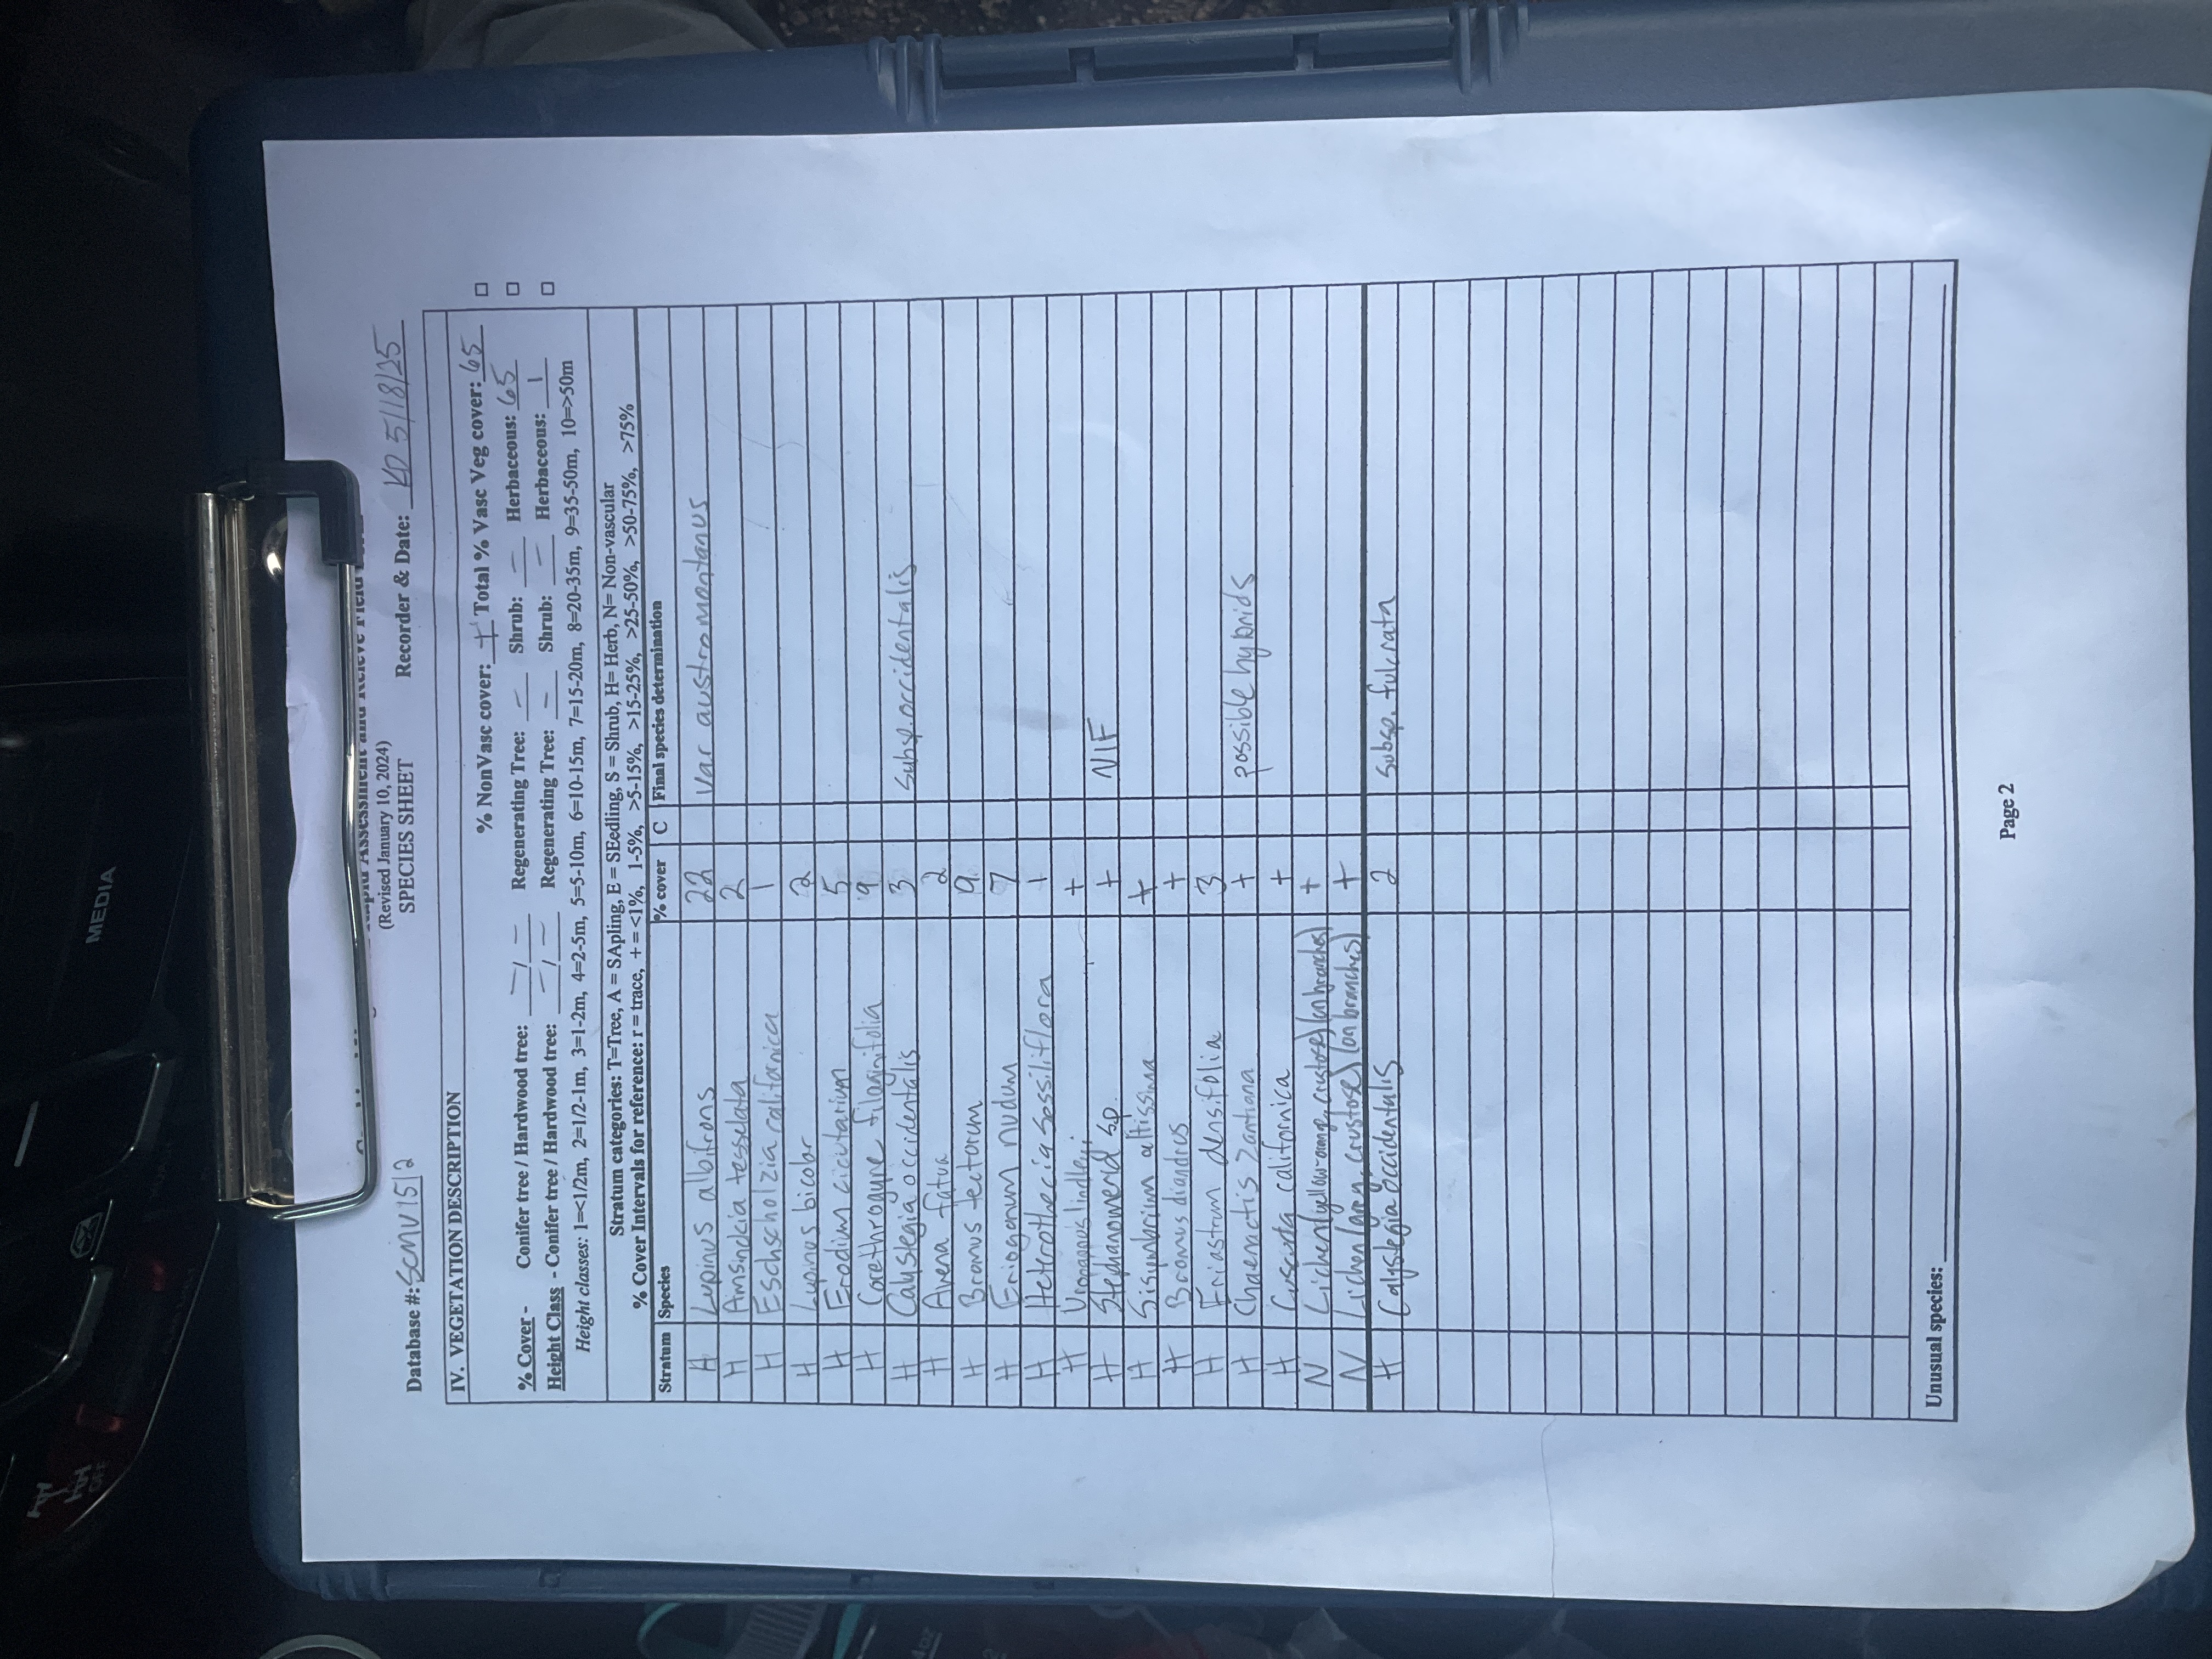 (Revised January 10, 2024)
SPECIES SHEET
Database #: SCMV1512 Recorder & Date: KD 5/18/25
IV. VEGETATION DESCRIPTION
% NonVasc cover: + Total % Vasc Veg cover: 65
% Cover - Conifer tree / Hardwood tree: - / - Regenerating Tree: - Shrub: - Herbaceous: 65
Height Class - Conifer tree / Hardwood tree: - / - Regenerating Tree: - Shrub: - Herbaceous: 1
Height classes: 1=<1/2m, 2=1/2-1m, 3=1-2m, 4=2-5m, 5=5-10m, 6=10-15m, 7=15-20m, 8=20-35m, 9=35-50m, 10=>50m
Stratum categories: T=Tree, A = SApling, E = SEedling, S = Shrub, H= Herb, N= Non-vascular
% Cover Intervals for reference: r = trace, + = <1%, 1-5%, >5-15%, >15-25%, >25-50%, >50-75%, >75%
Stratum Species % cover C Final species determination
H Lupinus albifrons 22 var austromontanus
H Amsinckia tesselata 2
H Eschscholzia californica 1
H Lupinus bicolor 2
H Erodium cicutarium 5
H Corethrogyne filaginifolia 9
H Calystegia occidentalis 3 subsp. occidentalis
H Avena fatua 2
H Bromus tectorum 9
H Eriogonum nudum 7
H Heterotheca sessiliflora 1
H Uropappus lindleyi +
H Stephanomeria sp. + NIF
H Sisymbrium altissima +
H Bromus diandrus +
H Eriastrum densifolia 3
H Chaenactis Zantiana + possible hybrids
H Cuscuta californica +
N Lichen (yellow-orange, crustose) (on branches) +
N Lichen (grey, crustose) (on branches) +
H Calystegia occidentalis 2 subsp. fulcrata
Unusual species:
Page 2
MEDIA